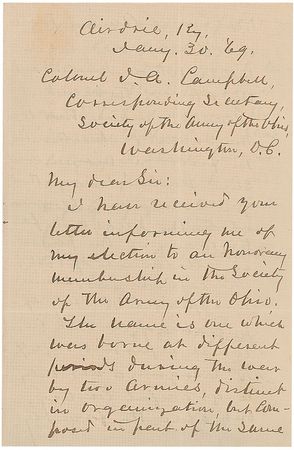 Airdrie, Ky,
Jany. 30. '69.
Colonel J. A. Campbell,
Corresponding Secretary,
Society of the Army of the Ohio,
Washington, D.C.
My dear Sir:
I have received your
letter informing me of
my election to an honorary
membership in the Society
of the Army of the Ohio.
The name is one which
was borne at different
periods during the war
by two Armies, distinct
in organization, but com-
posed in part of the same